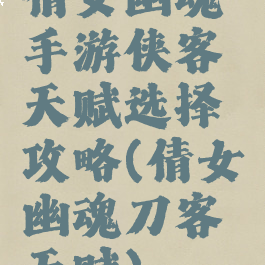 倩女幽魂
手游侠客
天赋选择
攻略(倩女
幽魂刀客
天赋)